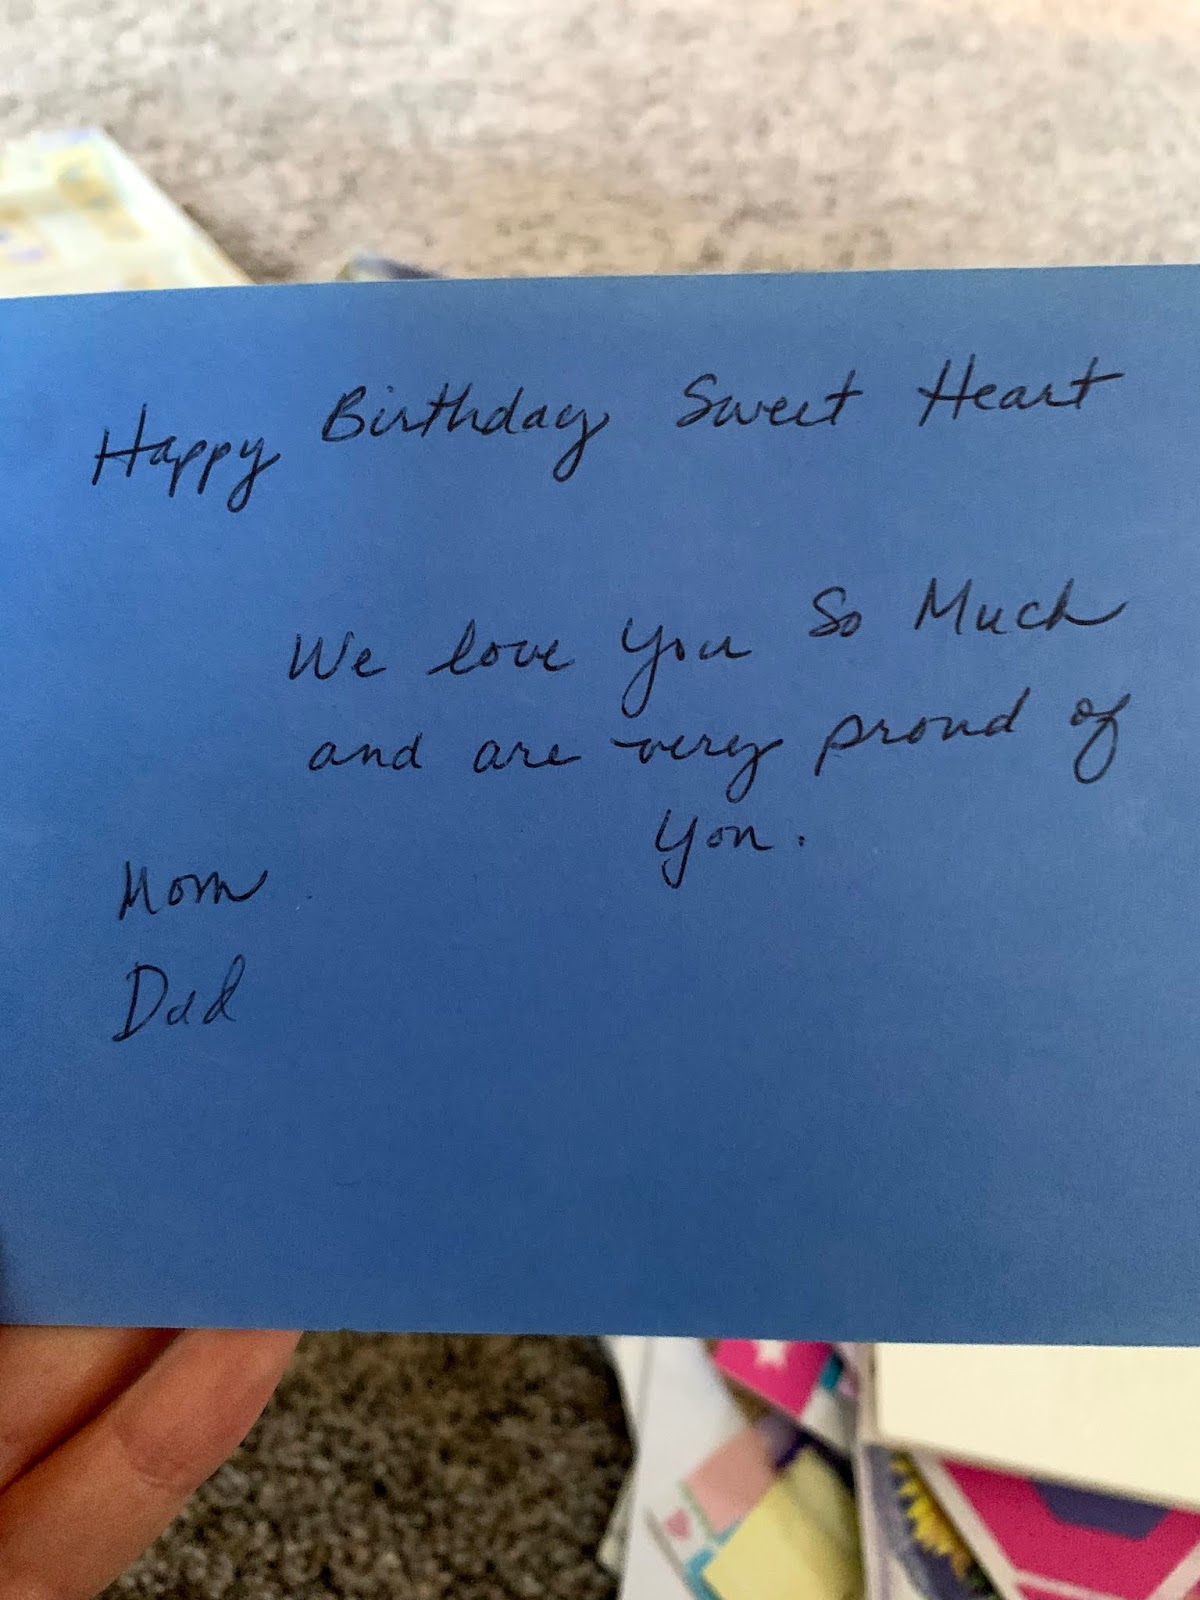 Happy Birthday Sweet Heart
We love you So Much
and are very proud of
you.
Mom
Dad